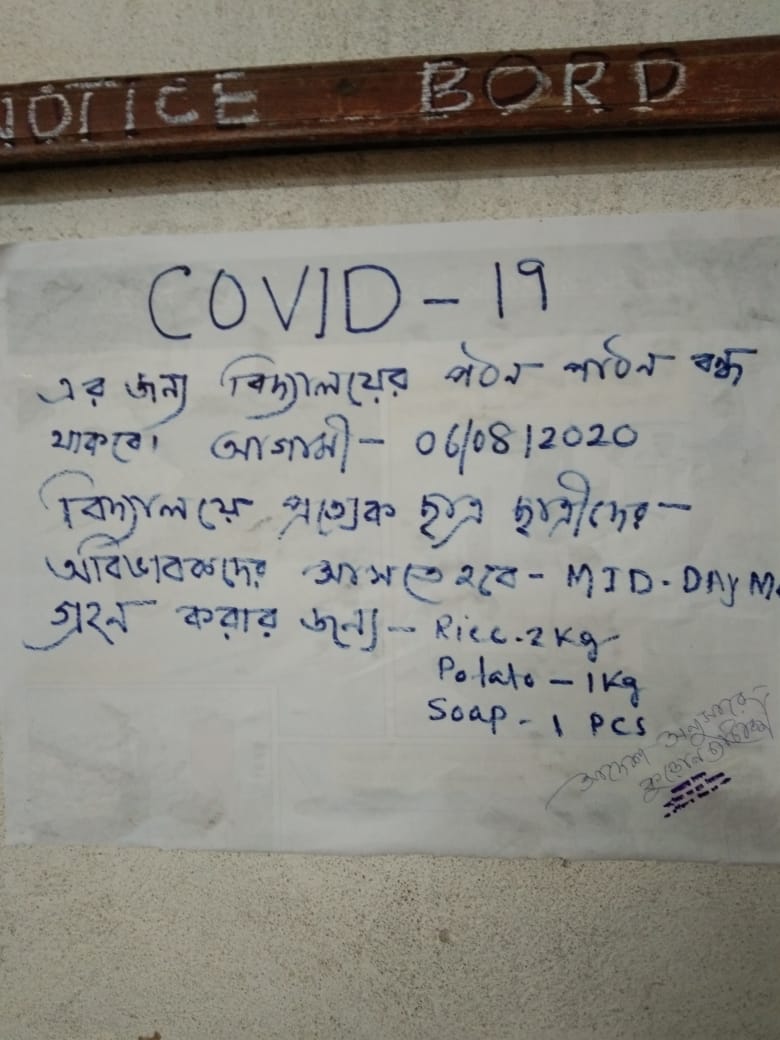 NOTICE BORD
COVID - 19
এর জন্য বিদ্যালয়ের পঠন পাঠন বন্ধ
থাকবে। আগামী - 06/08/2020
বিদ্যালয়ে প্রত্যেক ছাত্র ছাত্রীদের -
অবিভাবকদের আসতে হবে - MID-DAY M
গ্রহন করার জন্য - Rice - 2 Kg
Potato - 1 Kg
Soap - 1 PCS
অনুসারে